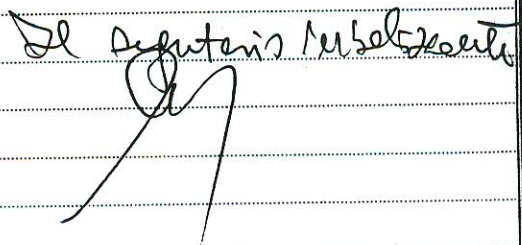 Il segretario verbalizzante